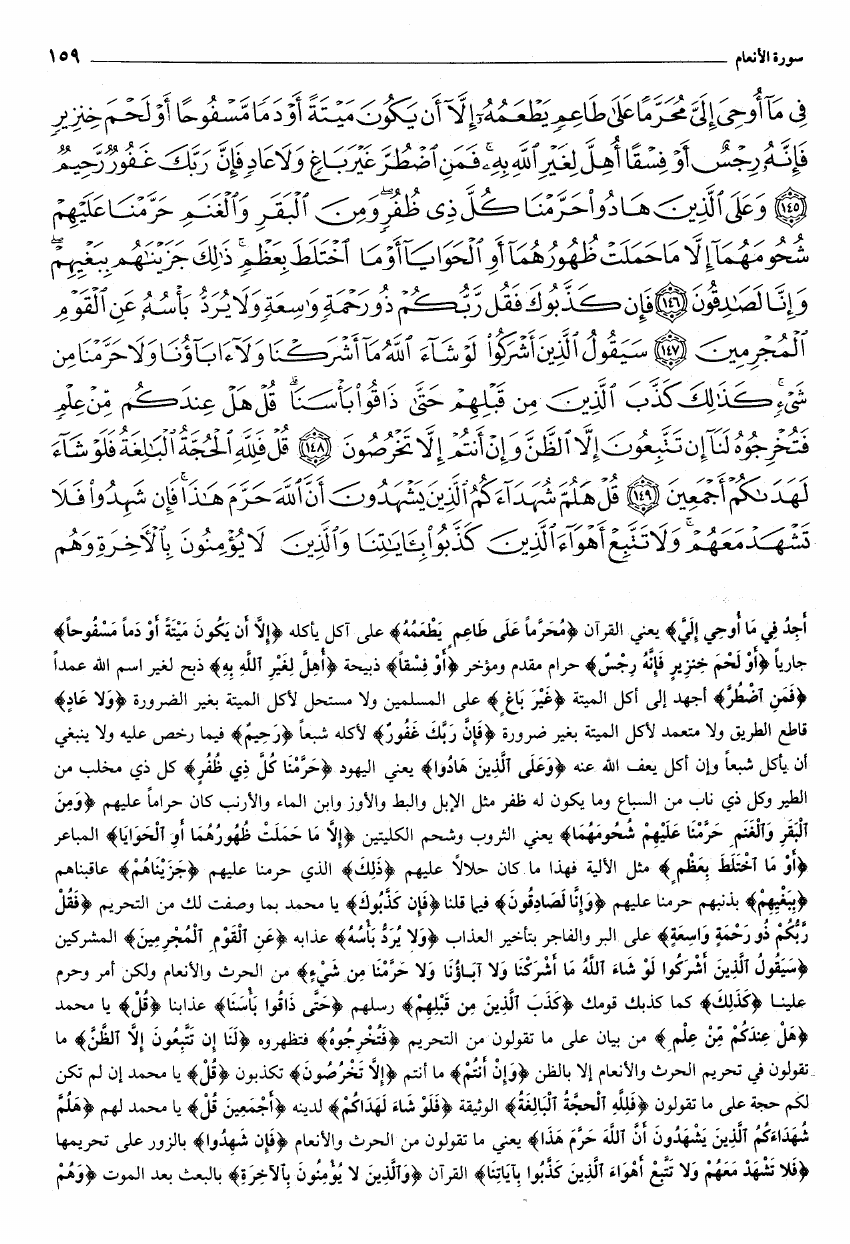 سورة الأنعام ١٥٩
فِى مَآ أُوحِىَ إِلَىَّ مُحَرَّمًا عَلَىٰ طَاعِمٍ يَطْعَمُهُۥٓ إِلَّآ أَن يَكُونَ مَيْتَةً أَوْ دَمًا مَّسْفُوحًا أَوْ لَحْمَ خِنزِيرٍ
فَإِنَّهُۥ رِجْسٌ أَوْ فِسْقًا أُهِلَّ لِغَيْرِ ٱللَّهِ بِهِۦ ۚ فَمَنِ ٱضْطُرَّ غَيْرَ بَاغٍ وَلَا عَادٍ فَإِنَّ رَبَّكَ غَفُورٌ رَّحِيمٌ
﴿١٤٥﴾ وَعَلَى ٱلَّذِينَ هَادُوا۟ حَرَّمْنَا كُلَّ ذِى ظُفُرٍ ۖ وَمِنَ ٱلْبَقَرِ وَٱلْغَنَمِ حَرَّمْنَا عَلَيْهِمْ
شُحُومَهُمَآ إِلَّا مَا حَمَلَتْ ظُهُورُهُمَآ أَوِ ٱلْحَوَايَآ أَوْ مَا ٱخْتَلَطَ بِعَظْمٍ ۚ ذَٰلِكَ جَزَيْنَٰهُم بِبَغْيِهِمْ ۖ
وَإِنَّا لَصَٰدِقُونَ ﴿١٤٦﴾ فَإِن كَذَّبُوكَ فَقُل رَّبُّكُمْ ذُو رَحْمَةٍ وَٰسِعَةٍ وَلَا يُرَدُّ بَأْسُهُۥ عَنِ ٱلْقَوْمِ
ٱلْمُجْرِمِينَ ﴿١٤٧﴾ سَيَقُولُ ٱلَّذِينَ أَشْرَكُوا۟ لَوْ شَآءَ ٱللَّهُ مَآ أَشْرَكْنَا وَلَآ ءَابَآؤُنَا وَلَا حَرَّمْنَا مِن
شَىْءٍ ۚ كَذَٰلِكَ كَذَّبَ ٱلَّذِينَ مِن قَبْلِهِمْ حَتَّىٰ ذَاقُوا۟ بَأْسَنَا ۗ قُلْ هَلْ عِندَكُم مِّنْ عِلْمٍ
فَتُخْرِجُوهُ لَنَآ ۖ إِن تَتَّبِعُونَ إِلَّا ٱلظَّنَّ وَإِنْ أَنتُمْ إِلَّا تَخْرُصُونَ ﴿١٤٨﴾ قُلْ فَلِلَّهِ ٱلْحُجَّةُ ٱلْبَٰلِغَةُ ۖ فَلَوْ شَآءَ
لَهَدَىٰكُمْ أَجْمَعِينَ ﴿١٤٩﴾ قُلْ هَلُمَّ شُهَدَآءَكُمُ ٱلَّذِينَ يَشْهَدُونَ أَنَّ ٱللَّهَ حَرَّمَ هَٰذَا ۖ فَإِن شَهِدُوا۟ فَلَا
تَشْهَدْ مَعَهُمْ ۚ وَلَا تَتَّبِعْ أَهْوَآءَ ٱلَّذِينَ كَذَّبُوا۟ بِـَٔايَٰتِنَا وَٱلَّذِينَ لَا يُؤْمِنُونَ بِٱلْـَٔاخِرَةِ وَهُم
أَجِدُ فِي مَا أُوحي إِلَيَّ﴾ يعني القرآن ﴿مُحَرَّماً عَلَى طَاعِمٍ يَطْعَمُهُ﴾ على آكل يأكله ﴿إِلَّا أَن يَكُونَ مَيْتَةً أَوْ دَماً مَسْفُوحاً﴾
جارياً ﴿أَوْ لَحْمِ خِنزِيرٍ فَإِنَّهُ رِجْسٌ﴾ حرام مقدم ومؤخر ﴿أَوْ فِسْقاً﴾ ذبيحة ﴿أُهِلَّ لِغَيْرِ ٱللَّهِ بِهِ﴾ ذبح لغير اسم الله عمداً
﴿فَمَنِ ٱضْطُرَّ﴾ أجهد إلى أكل الميتة ﴿غَيْرَ بَاغٍ﴾ على المسلمين ولا مستحل لأكل الميتة بغير الضرورة ﴿وَلا عَادٍ﴾
قاطع الطريق ولا متعمد لأكل الميتة بغير ضرورة ﴿فَإِنَّ رَبَّكَ غَفُورٌ﴾ لأكله شبعاً ﴿رَحِيمٌ﴾ فيما رخص عليه ولا ينبغي
أن يأكل شبعاً وإن أكل يعف الله عنه ﴿وَعَلَى ٱلَّذِينَ هَادُوا﴾ يعني اليهود ﴿حَرَّمْنَا كُلَّ ذِي ظُفُرٍ﴾ كل ذي مخلب من
الطير وكل ذي ناب من السباع وما يكون له ظفر مثل الإبل والبط والأوز وابن الماء والأرنب كان حراماً عليهم ﴿وَمِنَ
ٱلْبَقَرِ وَٱلْغَنَمِ حَرَّمْنَا عَلَيْهِمْ شُحُومَهُمَا﴾ يعني الثروب وشحم الكليتين ﴿إِلَّا مَا حَمَلَتْ ظُهُورُهُمَا أَوِ ٱلْحَوَايَا﴾ المباعر
﴿أَوْ مَا ٱخْتَلَطَ بِعَظْمٍ﴾ مثل الألية فهذا ما كان حلالاً عليهم ﴿ذَلِكَ﴾ الذي حرمنا عليهم ﴿جَزَيْنَاهُمْ﴾ عاقبناهم
﴿بِبَغْيِهِمْ﴾ بذنبهم حرمنا عليهم ﴿وَإِنَّا لَصَادِقُونَ﴾ فيما قلنا ﴿فَإِن كَذَّبُوكَ﴾ يا محمد بما وصفت لك من التحريم ﴿فَقُلْ
رَّبُّكُمْ ذُو رَحْمَةٍ وَاسِعَةٍ﴾ على البر والفاجر بتأخير العذاب ﴿وَلا يُرَدُّ بَأْسُهُ﴾ عذابه ﴿عَنِ ٱلْقَوْمِ ٱلْمُجْرِمِينَ﴾ المشركين
﴿سَيَقُولُ ٱلَّذِينَ أَشْرَكُوا لَوْ شَاءَ ٱللَّهُ مَا أَشْرَكْنَا وَلا آبَاؤُنَا وَلا حَرَّمْنَا مِن شَيْءٍ﴾ من الحرث والأنعام ولكن أمر وحرم
علينا ﴿كَذَلِكَ﴾ كما كذبك قومك ﴿كَذَّبَ ٱلَّذِينَ مِن قَبْلِهِمْ﴾ رسلهم ﴿حَتَّى ذَاقُوا بَأْسَنَا﴾ عذابنا ﴿قُلْ﴾ يا محمد
﴿هَلْ عِندَكُمْ مِّنْ عِلْمٍ﴾ من بيان على ما تقولون من التحريم ﴿فَتُخْرِجُوهُ﴾ فتظهروه ﴿لَنَا إِن تَتَّبِعُونَ إِلَّا ٱلظَّنَّ﴾ ما
تقولون في تحريم الحرث والأنعام إلا بالظن ﴿وَإِنْ أَنتُمْ﴾ ما أنتم ﴿إِلَّا تَخْرُصُونَ﴾ تكذبون ﴿قُلْ﴾ يا محمد إن لم تكن
لكم حجة على ما تقولون ﴿فَلِلَّهِ ٱلْحجَّةُ ٱلْبَالِغَةُ﴾ الوثيقة ﴿فَلَوْ شَاءَ لَهَدَاكُمْ﴾ لدينه ﴿أَجْمَعِينَ قُلْ﴾ يا محمد لهم ﴿هَلُمَّ
شُهَدَاءَكُمُ ٱلَّذِينَ يَشْهَدُونَ أَنَّ ٱللَّهَ حَرَّمَ هَذَا﴾ يعني ما تقولون من الحرث والأنعام ﴿فَإِن شَهِدُوا﴾ بالزور على تحريمها
﴿فَلا تَشْهَدْ مَعَهُمْ وَلا تَتَّبِعْ أَهْوَاءَ ٱلَّذِينَ كَذَّبُوا بِآيَاتِنَا﴾ القرآن ﴿وَٱلَّذِينَ لا يُؤْمِنُونَ بِٱلآخِرَةِ﴾ بالبعث بعد الموت ﴿وَهُمْ